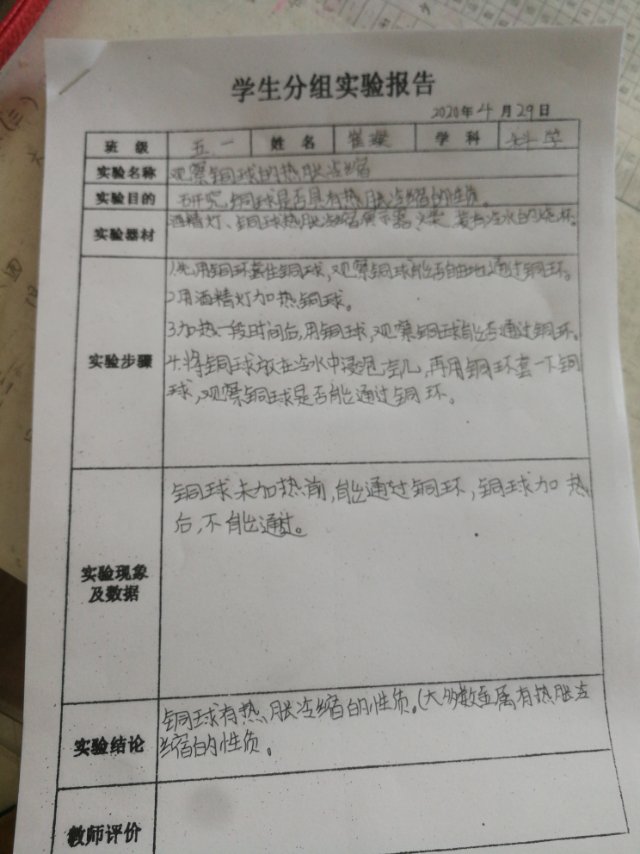 学生分组实验报告
2020年4月29日
班级 五一 姓名 崔璨 学科 科学
实验名称 观察铜球的热胀冷缩
实验目的 研究铜球是否具有热胀冷缩的性质。
实验器材 酒精灯、铜球热胀冷缩演示器、火柴、装有冷水的烧杯。
实验步骤
1.先用铜环套住铜球,观察铜球能否自由地通过铜环。
2.用酒精灯加热铜球。
3.加热一段时间后,用铜球,观察铜球能否通过铜环。
4.将铜球放在冷水中浸泡会儿,再用铜环套一下铜
球,观察铜球是否能通过铜环。
实验现象及数据
铜球未加热前,能通过铜环,铜球加热
后,不能通过。
实验结论
铜球有热胀冷缩的性质。(大多数金属有热胀冷
缩的性质。
教师评价